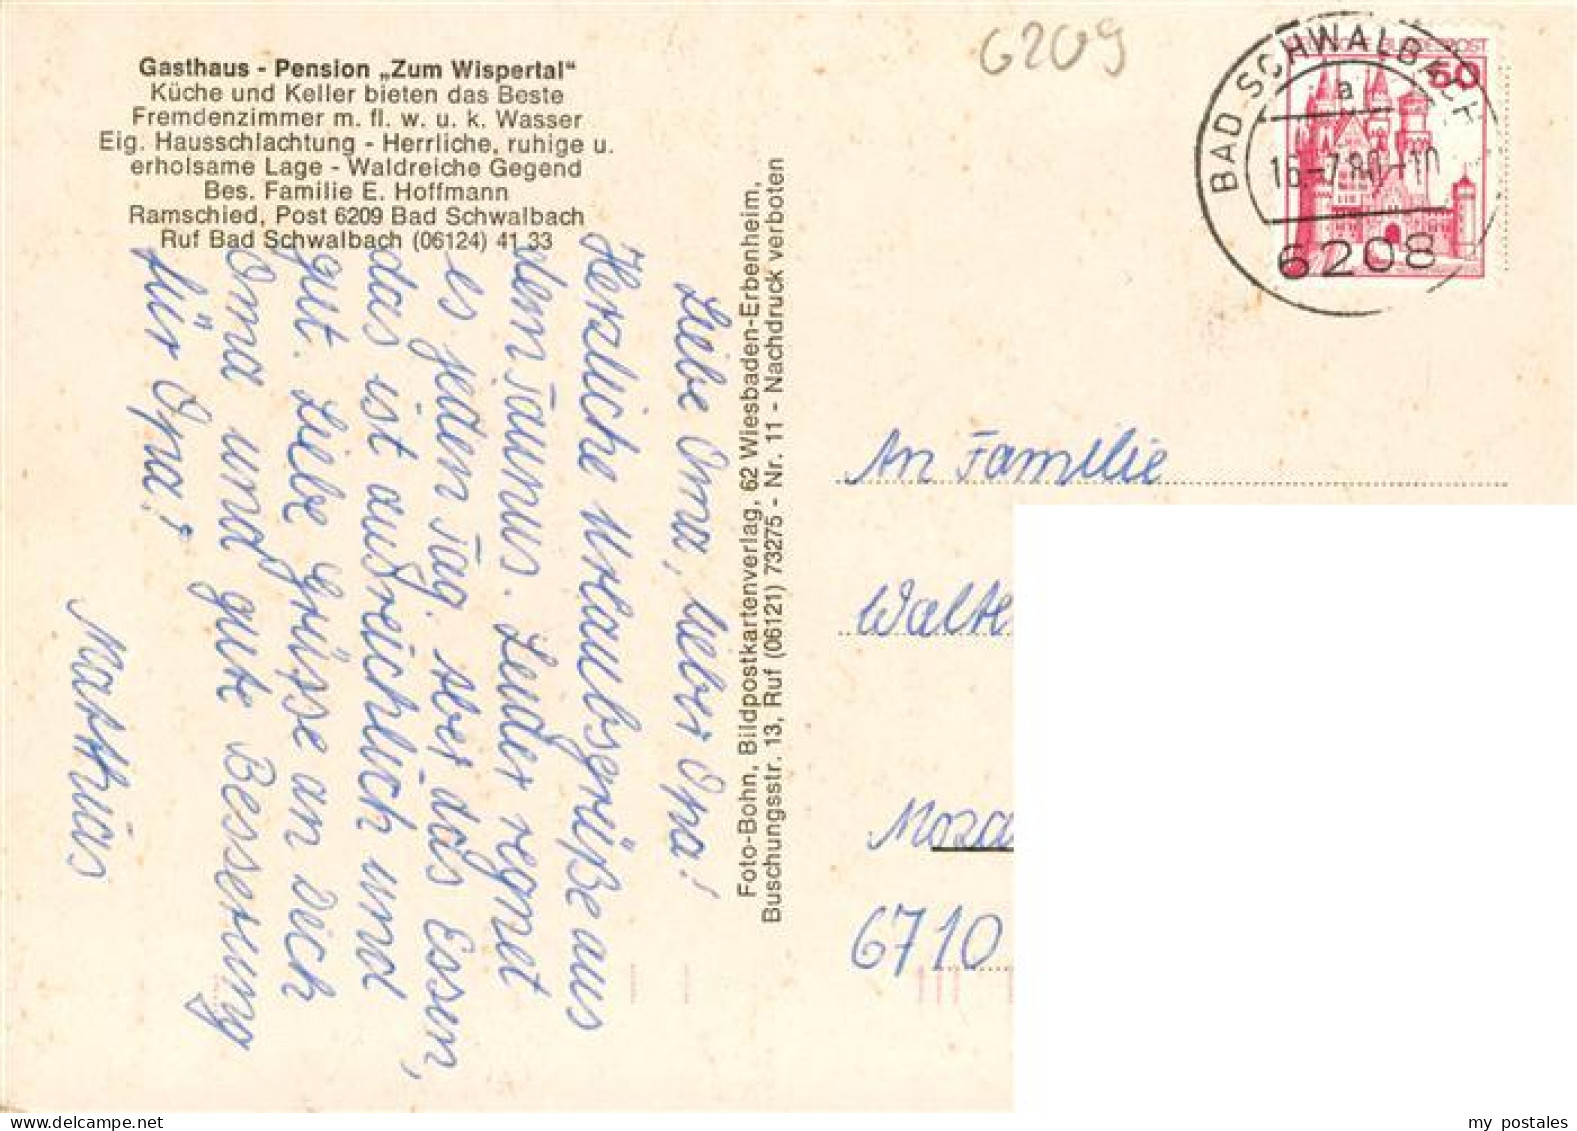 Gasthaus - Pension „Zum Wispertal“
Küche und Keller bieten das Beste
Fremdenzimmer m. fl. w. u. k. Wasser
Eig. Hausschlachtung - Herrliche, ruhige u.
erholsame Lage - Waldreiche Gegend
Bes. Familie E. Hoffmann
Ramschied, Post 6209 Bad Schwalbach
Ruf Bad Schwalbach (06124) 41 33
Leibe Oma, lieber Opa!
Herzliche Urlaubsgrüße aus
dem Taunus. Leider regnet
es jeden Tag. Aber das Essen,
das ist aufreichlich und
gut. Liebe Grüsse an Dich
Oma und gute Besserung
für Opa!
Matthias
Foto-Bohn, Bildpostkartenverlag, 62 Wiesbaden-Erbenheim,
Buschungsstr. 13, Ruf (06121) 73275 - Nr. 11 - Nachdruck verboten
6209
BAD SCHWALBACH
50
a
16.-7.80-10
6208
An Familie
Walte
Moza
6710
my postales